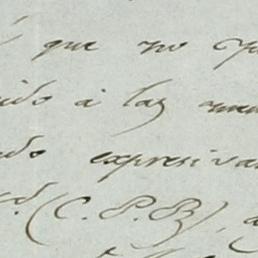 que no
ido á las
do expresiva
d. (C. P. B),